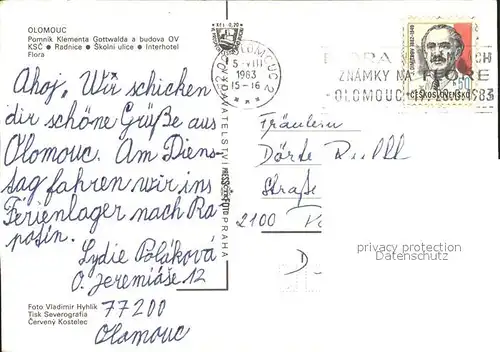 OLOMOUC
Pomník Klementa Gottwalda a budova OV
KSČ • Radnice • Školní ulice • Interhotel
Flora
Ahoj, Wir schicken
dir schöne Grüße aus
Olomouc. Am Diens-
tag fahren wir ins
Ferienlager nach Ra-
potín.
Lydie Poláková
O. Jeremiáše 12
77200
Olomouc
Foto Vladimír Hyhlík
Tisk Severografia
Červený Kostelec
PRAHA
OLOMOUC 2
5.-VIII
1983
15-16
ZNÁMKY NA FLOŘE
OLOMOUC
1983
50
ČESKOSLOVENSKO
Fräulein
Dörte
Straße
2100
D-
privacy protection
Datenschutz